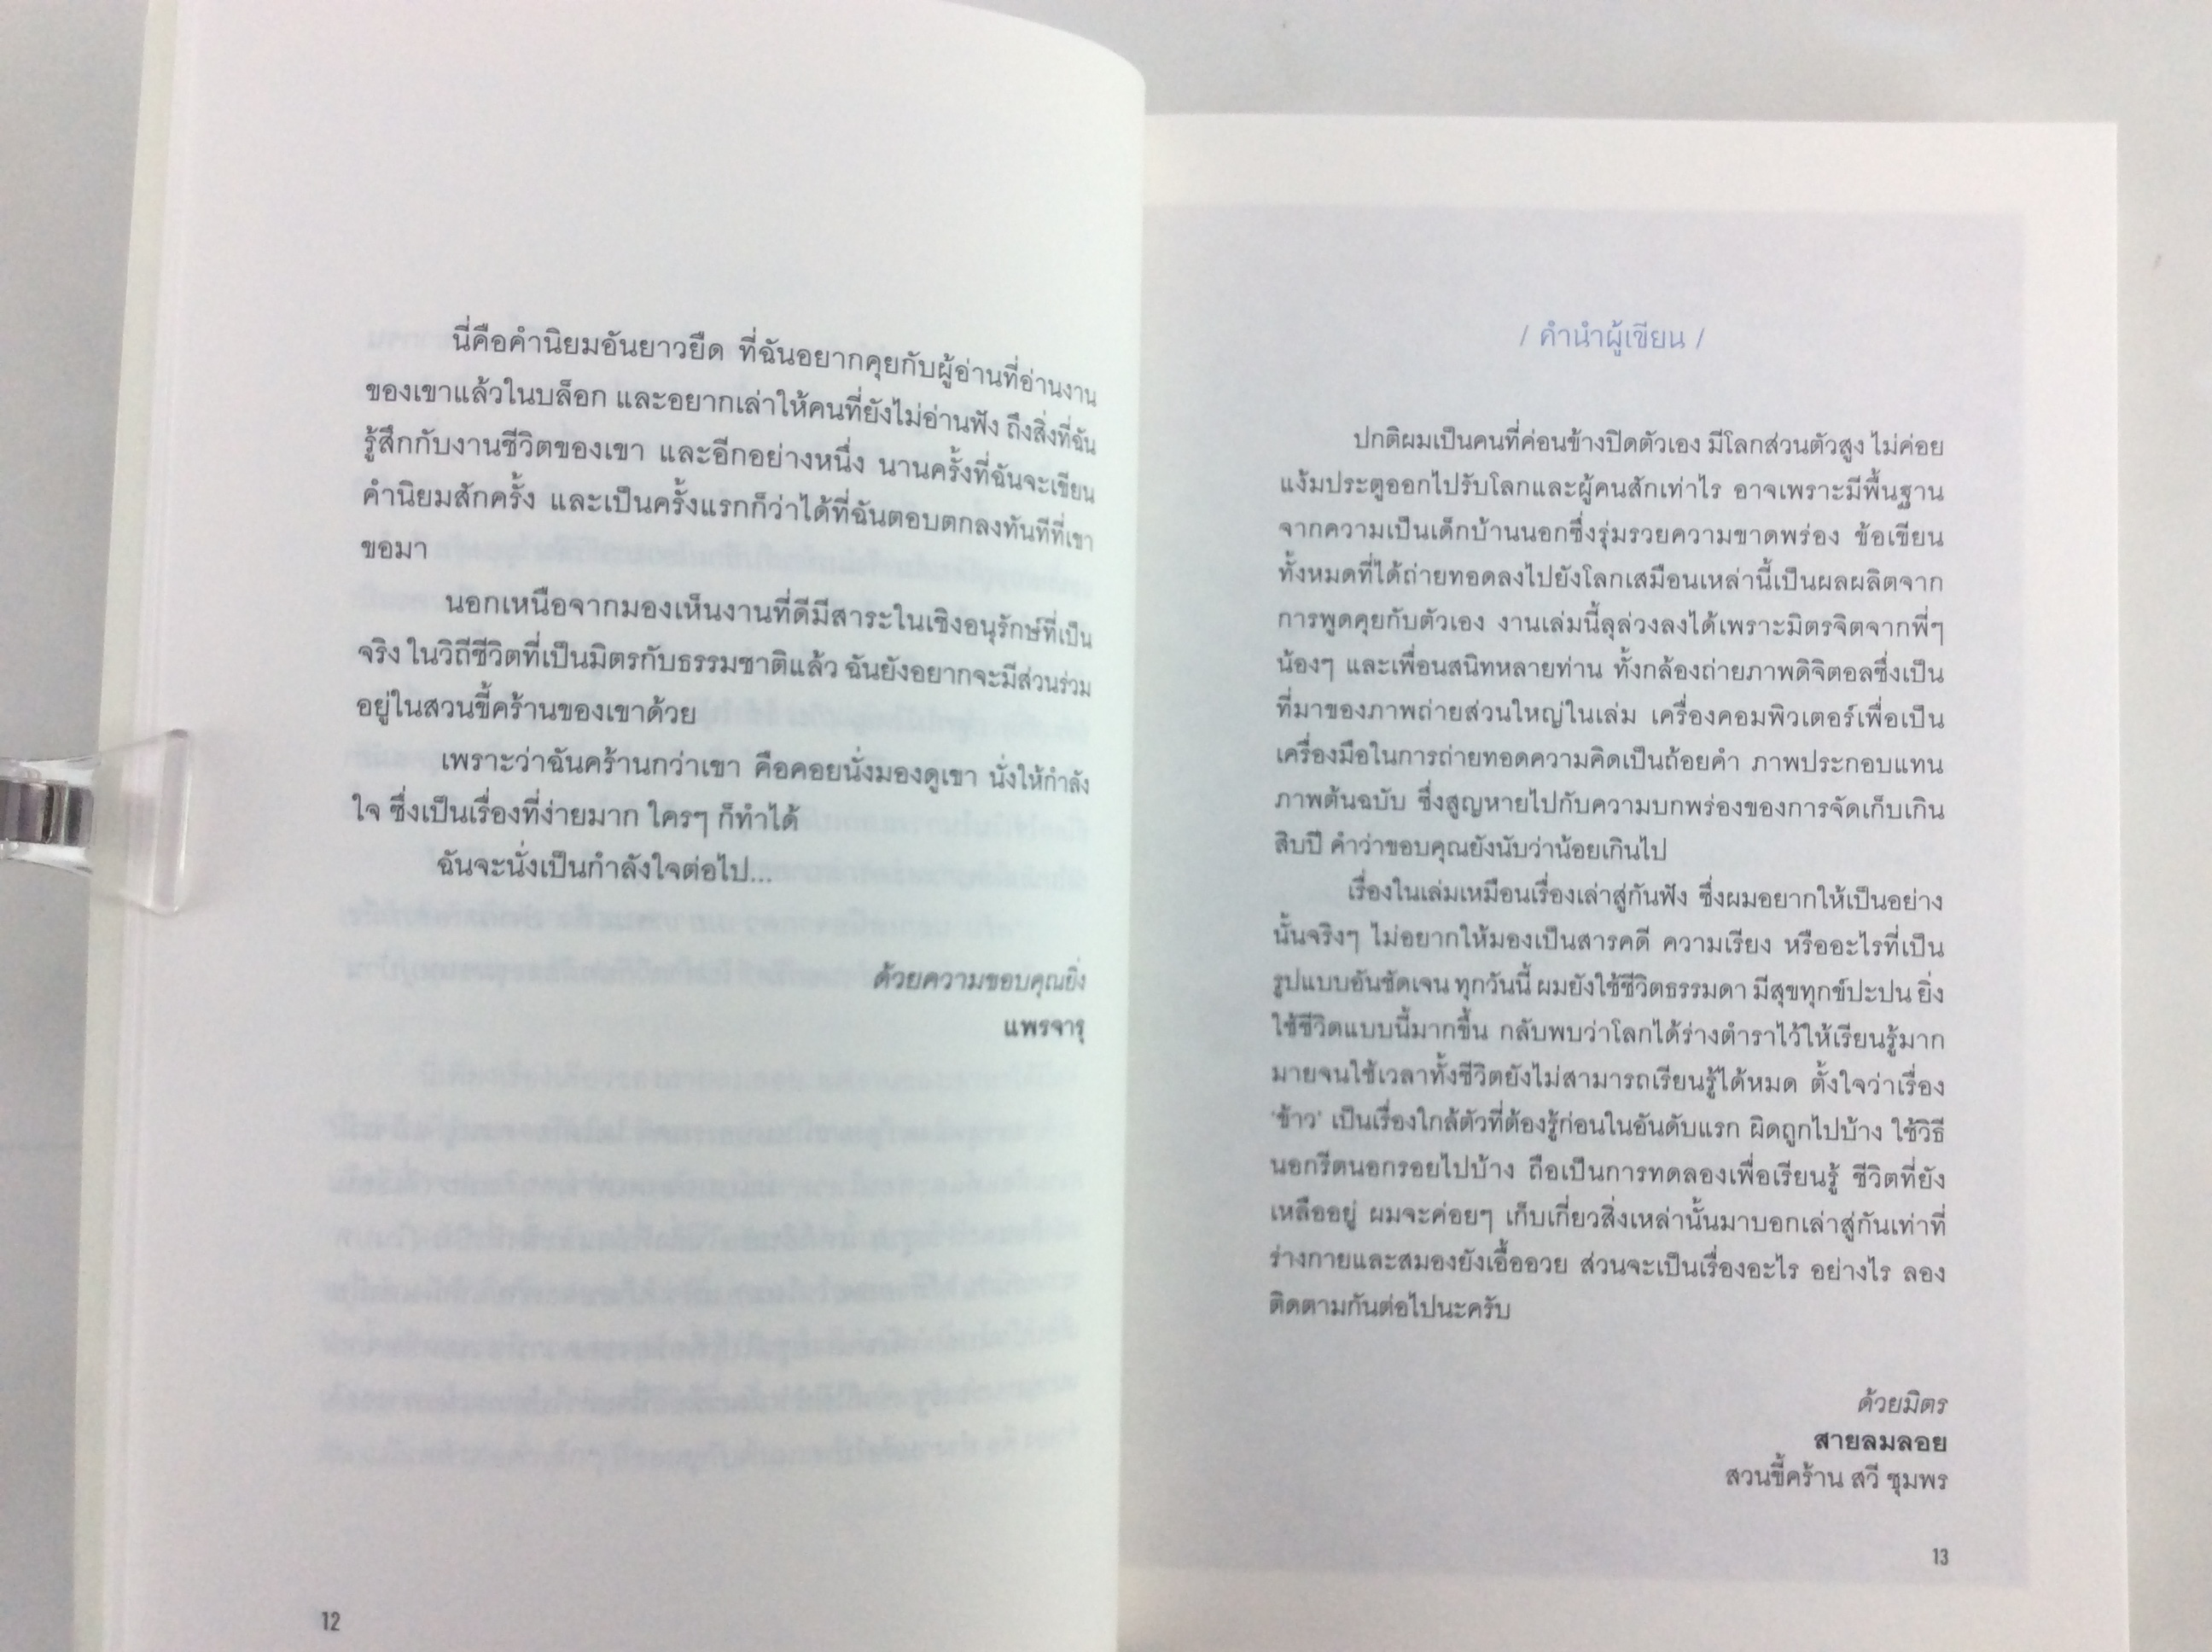 นี่คือคำนิยมอันยาวยืด ที่ฉันอยากคุยกับผู้อ่านที่อ่านงาน
ของเขาแล้วในบล็อก และอยากเล่าให้คนที่ยังไม่อ่านฟัง ถึงสิ่งที่ฉัน
รู้สึกกับงานชีวิตของเขา และอีกอย่างหนึ่ง นานครั้งที่ฉันจะเขียน
คำนิยมสักครั้ง และเป็นครั้งแรกก็ว่าได้ที่ฉันตอบตกลงทันทีที่เขา
ขอมา
นอกเหนือจากมองเห็นงานที่ดีมีสาระในเชิงอนุรักษ์ที่เป็น
จริง ในวิถีชีวิตที่เป็นมิตรกับธรรมชาติแล้ว ฉันยังอยากจะมีส่วนร่วม
อยู่ในสวนขี้คร้านของเขาด้วย
เพราะว่าฉันคร้านกว่าเขา คือคอยนั่งมองดูเขา นั่งให้กำลัง
ใจ ซึ่งเป็นเรื่องที่ง่ายมาก ใครๆ ก็ทำได้
ฉันจะนั่งเป็นกำลังใจต่อไป...
ด้วยความขอบคุณยิ่ง
แพรจารุ
12
/ คำนำผู้เขียน /
ปกติผมเป็นคนที่ค่อนข้างปิดตัวเอง มีโลกส่วนตัวสูง ไม่ค่อย
แง้มประตูออกไปรับโลกและผู้คนสักเท่าไร อาจเพราะมีพื้นฐาน
จากความเป็นเด็กบ้านนอกซึ่งรุ่มรวยความขาดพร่อง ข้อเขียน
ทั้งหมดที่ได้ถ่ายทอดลงไปยังโลกเสมือนเหล่านี้เป็นผลผลิตจาก
การพูดคุยกับตัวเอง งานเล่มนี้ลุล่วงลงได้เพราะมิตรจิตจากพี่ๆ
น้องๆ และเพื่อนสนิทหลายท่าน ทั้งกล้องถ่ายภาพดิจิตอลซึ่งเป็น
ที่มาของภาพถ่ายส่วนใหญ่ในเล่ม เครื่องคอมพิวเตอร์เพื่อเป็น
เครื่องมือในการถ่ายทอดความคิดเป็นถ้อยคำ ภาพประกอบแทน
ภาพต้นฉบับ ซึ่งสูญหายไปกับความบกพร่องของการจัดเก็บเกิน
สิบปี คำว่าขอบคุณยังนับว่าน้อยเกินไป
เรื่องในเล่มเหมือนเรื่องเล่าสู่กันฟัง ซึ่งผมอยากให้เป็นอย่าง
นั้นจริงๆ ไม่อยากให้มองเป็นสารคดี ความเรียง หรืออะไรที่เป็น
รูปแบบอันชัดเจน ทุกวันนี้ ผมยังใช้ชีวิตธรรมดา มีสุขทุกข์ปะปน ยิ่ง
ใช้ชีวิตแบบนี้มากขึ้น กลับพบว่าโลกได้ร่างตำราไว้ให้เรียนรู้มาก
มายจนใช้เวลาทั้งชีวิตยังไม่สามารถเรียนรู้ได้หมด ตั้งใจว่าเรื่อง
'ข้าว' เป็นเรื่องใกล้ตัวที่ต้องรู้ก่อนในอันดับแรก ผิดถูกไปบ้าง ใช้วิธี
นอกรีตนอกรอยไปบ้าง ถือเป็นการทดลองเพื่อเรียนรู้ ชีวิตที่ยัง
เหลืออยู่ ผมจะค่อยๆ เก็บเกี่ยวสิ่งเหล่านั้นมาบอกเล่าสู่กันเท่าที่
ร่างกายและสมองยังเอื้ออวย ส่วนจะเป็นเรื่องอะไร อย่างไร ลอง
ติดตามกันต่อไปนะครับ
ด้วยมิตร
สายลมลอย
สวนขี้คร้าน สวี ชุมพร
13